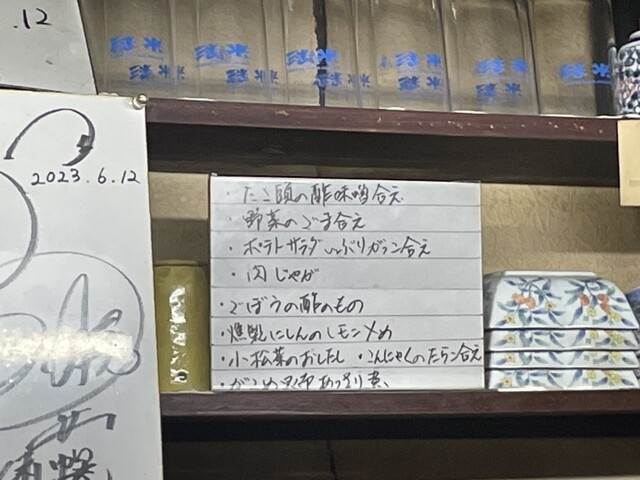 .12
2023.6.12
・たこ頭の酢味噌合え
・野菜のごま合え
・ポテトサラダいぶりガッコ合え
・肉じゃが
・ごぼうの酢のもの
・燻製にしんのレモン〆め
・小松菜のおしたし ・こんにゃくのたらこ合え
・がごめ昆布あっさり煮